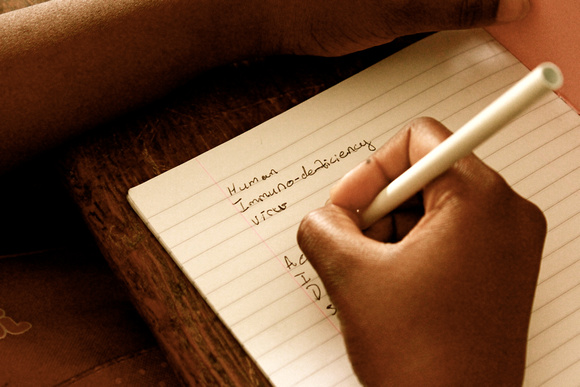 Human
Immuno-deficiency
Virus
A
I
D